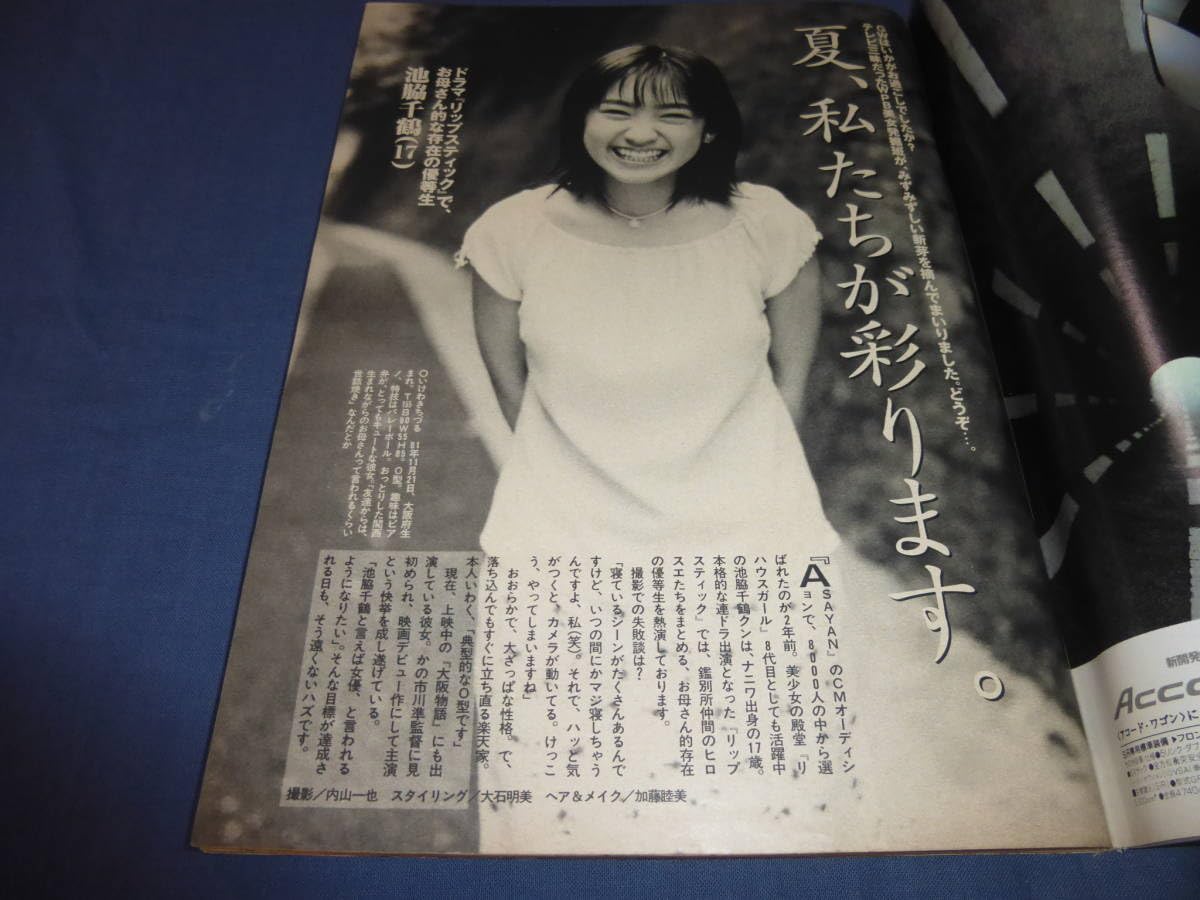 GWはいかがお過ごしでしたか?
テレビ三昧だったWPB美女発掘班が、みずみずしい新芽を摘んでまいりました。どうぞ…。
夏、私たちが彩ります。
ドラマ『リップスティック』で、
お母さん的な存在の優等生
池脇千鶴(17)
○いけわきちづる 81年11月21日、大阪府生
まれ。T155B80W55H85。O型。趣味はピア
ノ、特技はバレーボール。おっとりした関西
弁が、とってもキュートな彼女。「友達からは、
生まれながらのお母さんって言われるくらい
世話焼き」なんだとか
『ASAYAN』のCMオーディシ
ョンで、8000人の中から選
ばれたのが2年前。美少女の殿堂『リ
ハウスガール』8代目としても活躍中
の池脇千鶴クンは、ナニワ出身の17歳。
本格的な連ドラ出演となった『リップ
スティック』では、鑑別所仲間のヒロ
スエたちをまとめる、お母さん的存在
の優等生を熱演しております。
撮影での失敗談は?
「寝ているシーンがたくさんあるんで
すけど、いつの間にかマジ寝しちゃう
んですよ、私(笑)。それで、ハッと気
がつくと、カメラが動いてる。けっこ
う、やってしまいますね」
おおらかで、大ざっぱな性格。で、
落ち込んでもすぐに立ち直る楽天家。
本人いわく、「典型的なO型です」
現在、上映中の『大阪物語』にも出
演している彼女。かの市川準監督に見
初められ、映画デビュー作にして主演
という快挙を成し遂げている。
「池脇千鶴と言えば女優、と言われる
ようになりたい」。そんな目標が達成さ
れる日も、そう遠くないハズです。
撮影/内山一也 スタイリング/大石明美 ヘア&メイク/加藤睦美
新開発
Acco
〈アコード・ワゴン〉に